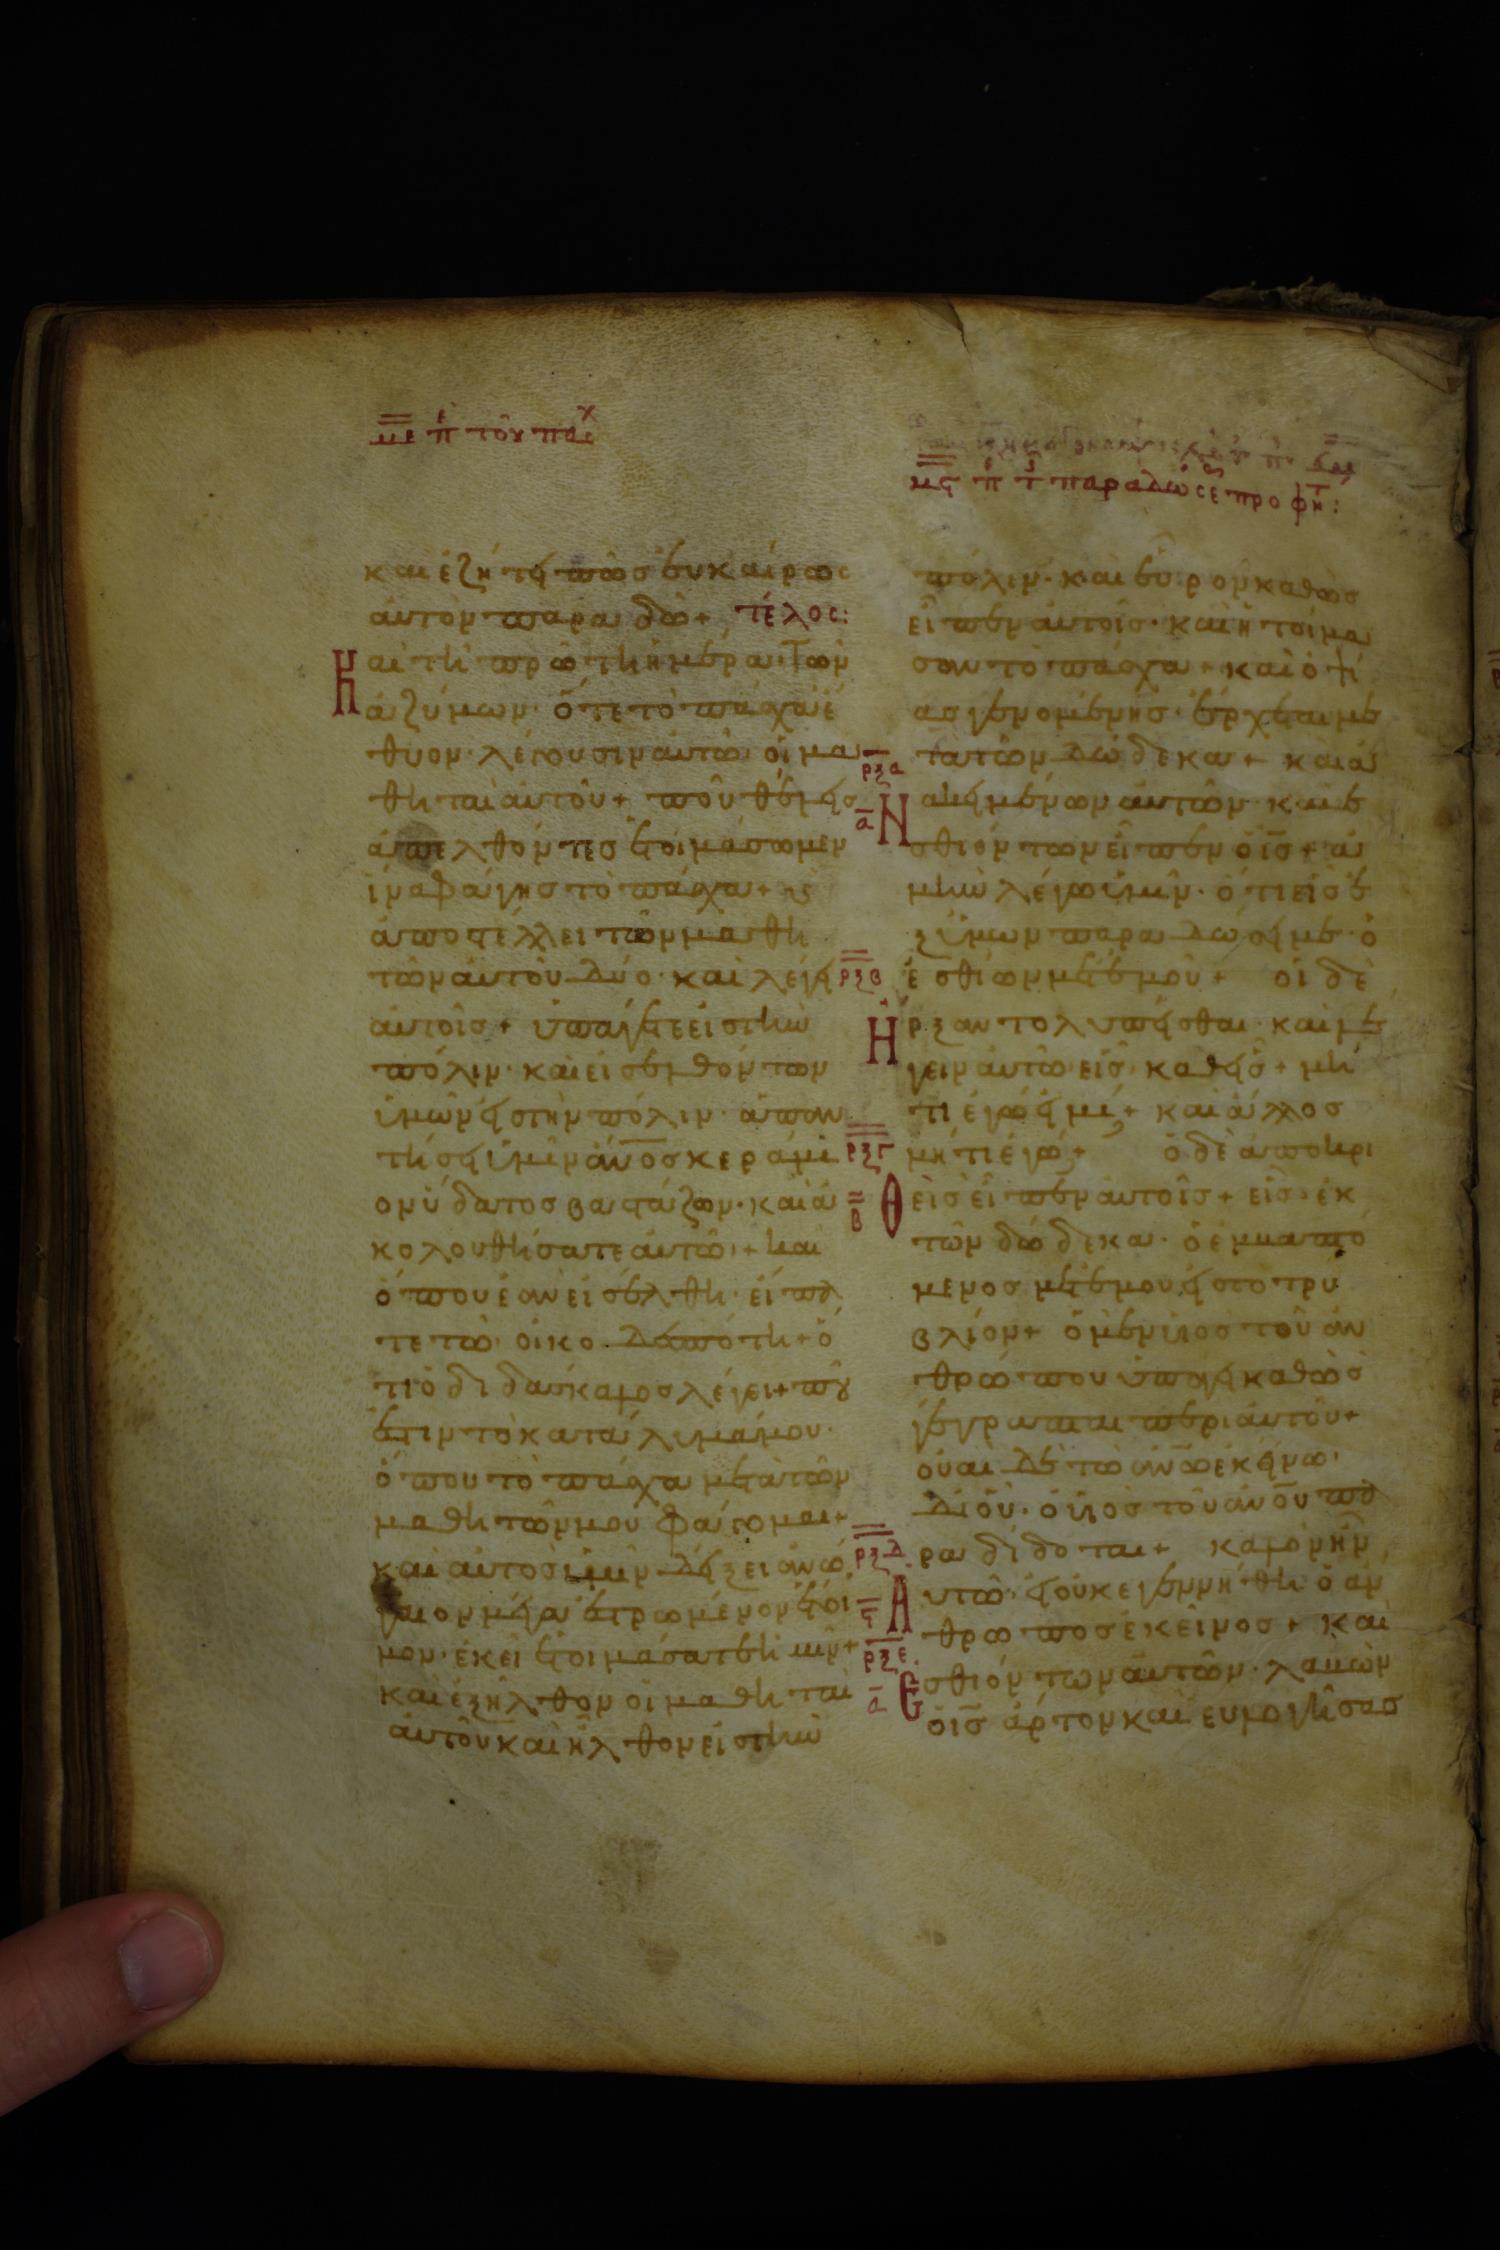 με π τοῦ πασχ
καὶ ἐζήτει πῶς εὐκαίρως
αὐτὸν παραδῶ+ τέλος:
Καὶ τῆ πρώτη ἡμέρα τῶν
ἀζύμων· ὅτε τὸ πάσχα ἔ
θυον· λέγουσιν αὐτῶ οἱ μα
θηταὶ αὐτοῦ+ ποῦ θέλεις
ἀπελθόντες ἑτοιμάσωμεν
ἵνα φάγης τὸ πάσχα+ ϗ
ἀποστέλλει τῶν μαθη
τῶν αὐτοῦ δύο· καὶ λέγει
αὐτοῖς+ ὑπάγετε εἰς τὴν
πόλιν· καὶ εἰσελθόντων
ὑμῶν εἰς τὴν πόλιν· ἀπαν
τήσει ὑμῖν ἄνος κεράμι
ον ὕδατος βαστάζων· καὶ ἀ
κολουθήσατε αὐτῶ+ καὶ
ὅπου ἐὰν εἰσέλθη· εἴπα
τε τῶ οἰκοδεσπότη+ ὅ
τι ὁ διδάσκαλος λέγει+ ποῦ
ἐστιν τὸ κατάλυμά μου·
ὅπου τὸ πάσχα μετὰ τῶν
μαθητῶν μου φάγομαι+
καὶ αὐτὸς ὑμῖν δείξει ἀνώ
γαιον μέγα ἐστρωμένον ἕτοι
μον· ἐκεῖ ἑτοιμάσατε ἡμῖν+
καὶ ἐξῆλθον οἱ μαθηταὶ
αὐτοῦ καὶ ἦλθον εἰς τὴν
μϛ π τ παραδώσε προφητ:
πόλιν· καὶ εὗρον καθὼς
εἶπεν αὐτοῖς· καὶ ἡτοίμα
σαν τὸ πάσχα+ καὶ ὀψί
ας γενομένης· ἔρχεται με
ρξα
τὰ τῶν δώδεκα+ καὶ ἀ
α
Νακειμένων αὐτῶν· καὶ ἐ
σθιόντων εἶπεν ὁ ἰς+ ἀ
μὴν λέγω ὑμῖν· ὅτι εἷς ἐ
ξ ὑμῶν παραδώσει με· ὁ
ρξβ
ἐσθίων μετ' ἐμοῦ+ οἱ δὲ
Ἤρξαντο λυπεῖσθαι· καὶ λέ
γειν αὐτῶ εἷς καθεῖς+ μή
τι ἐγώ εἰμι+ καὶ ἄλλος
ρξγ
μή τι ἐγώ+ ὁ δὲ ἀποκρι
β
Θεὶς εἶπεν αὐτοῖς+ εἷς ἐκ
τῶν δώδεκα· ὁ ἐμβαπτό
μενος μετ' ἐμοῦ εἰς τὸ τρυ
βλίον+ ὁ μὲν υἱὸς τοῦ ἀν
θρώπου ὑπάγει καθὼς
γέγραπται περὶ αὐτοῦ+
οὐαὶ δὲ τῶ ἀνω ἐκείνω·
δι' οὗ· ὁ υἱὸς τοῦ ἀνου πα
ρξδ
ραδίδοται+ καλὸν ἦν
ϛ
Αυτῶ· εἰ οὐκ ἐγεννήθη ὁ ἄν
θρωπος ἐκεῖνος+ καὶ
ρξε
α
Εσθιόντων αὐτῶν· λαβὼν
ὁ ἰς ἄρτον καὶ εὐλογήσας